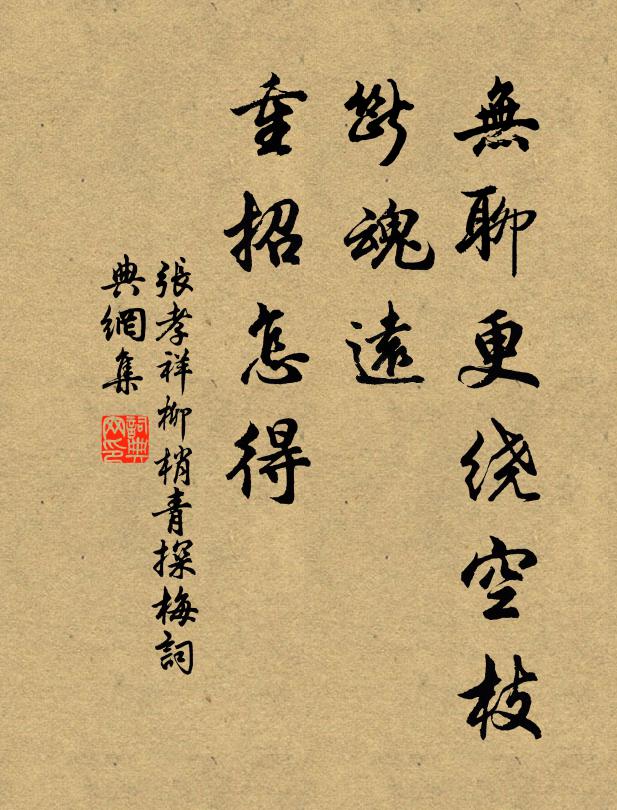 無聊更绕空枝
斷魂遠
重招怎得
張孝祥柳梢青探梅詞
典網集
詞典網印